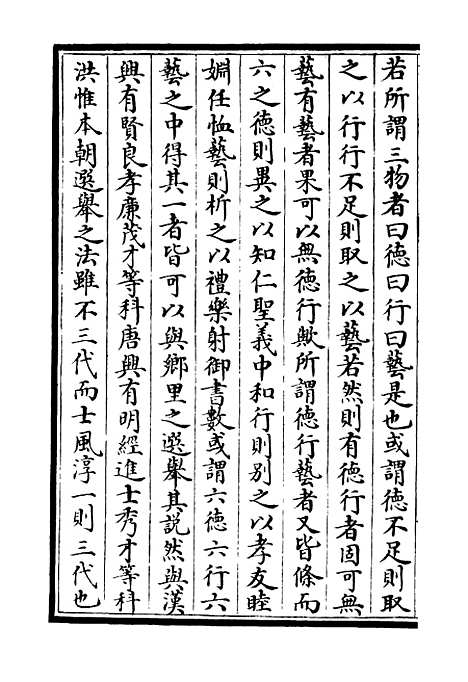 若所謂三物者曰徳曰行曰藝是也或謂徳不足則取
之以行行不足則取之以藝若然則有徳行者固可無
藝有藝者果可以無徳行歟所謂徳行藝者又皆條而
六之徳則異之以知仁聖義中和行則别之以孝友睦
婣任恤藝則析之以禮樂射御書數或謂六徳六行六
藝之中得其一者皆可以與鄉里之選舉其説然與漢
興有賢良孝廉茂才等科唐興有明經進士秀才等科
洪惟本朝選舉之法雖不三代而士風淳一則三代也